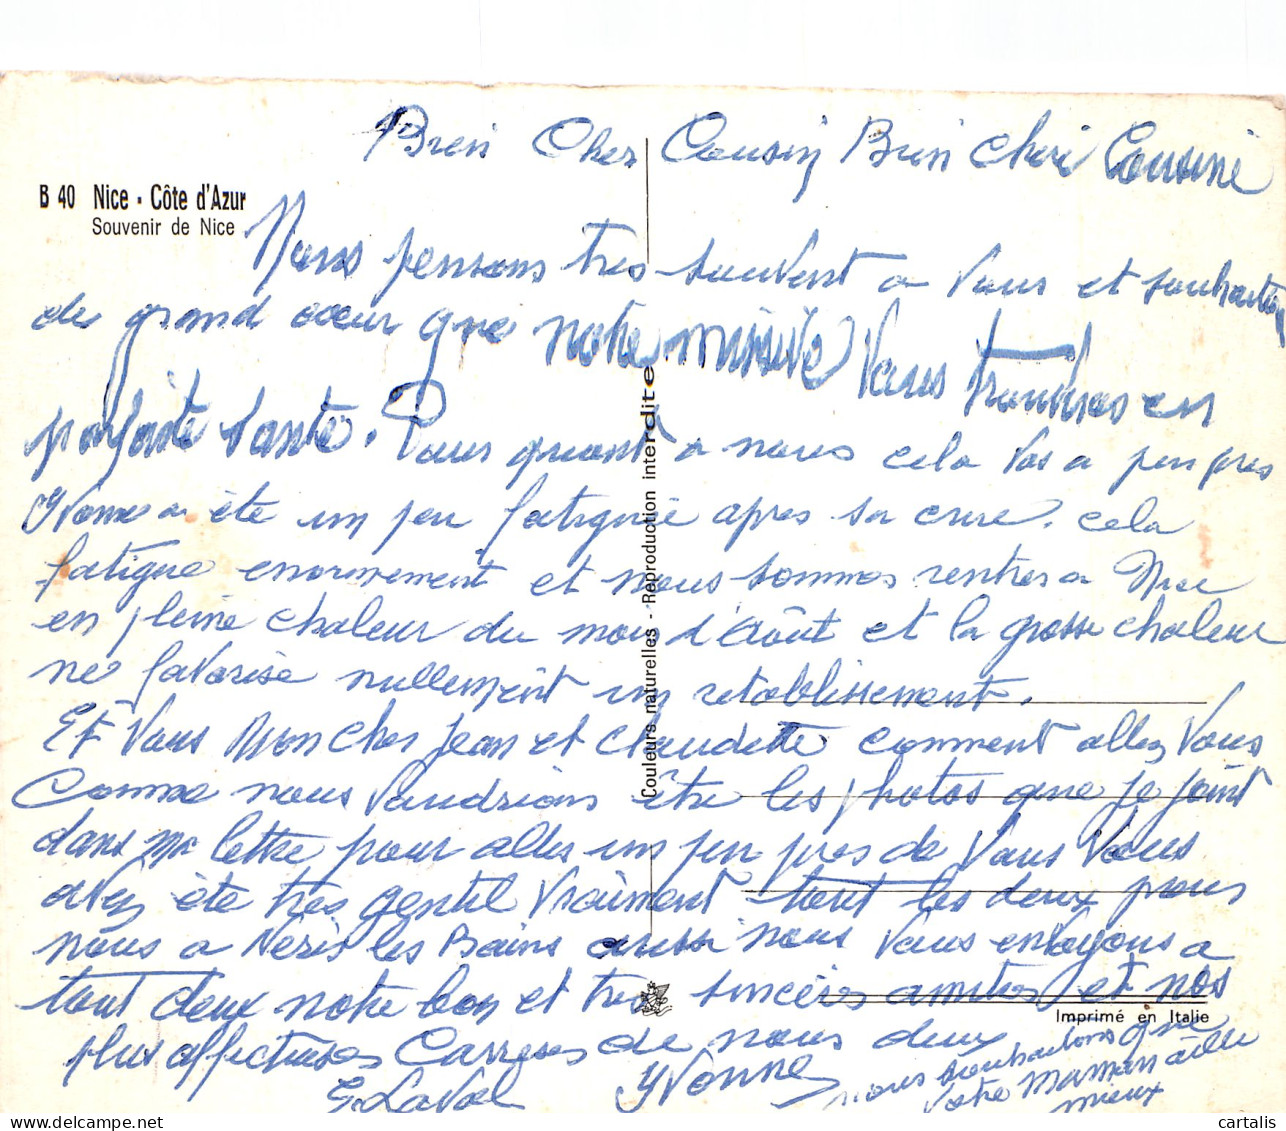 Bien Cher Cousin Bien Chère Cousine
B 40 Nice - Côte d'Azur
Souvenir de Nice
Nous pensons très souvent a Vous et souhaitons
de grand cœur que notre missive Vous trouveras en
parfaite santé. Pour quant a nous cela vas a peu pres
Yvonne a été un peu fatiguée apres sa cure. cela
fatigue enormement et nous sommes rentres a Nice
en pleine chaleur du mois d'Août et la grosse chaleur
ne favorise nullement un retablissement.
Et Vous Mon Cher Jean et Claudette comment allez Vous
Comme nous Voudrions être les photos que je joint
dans ma lettre pour aller un peu pres de Vous Vous
avez été très gentil Vraiment tout les deux pour
nous a Néris les Bains aussi nous Vous envoyons a
tout deux notre bon et très sincères amities et nos
plus affectueuses Carreses de nous deux
E. Laval Yvonne
nous souhaitons que
Votre Maman aille
mieux
Couleurs naturelles - Reproduction interdite
Imprimé en Italie
cartalis